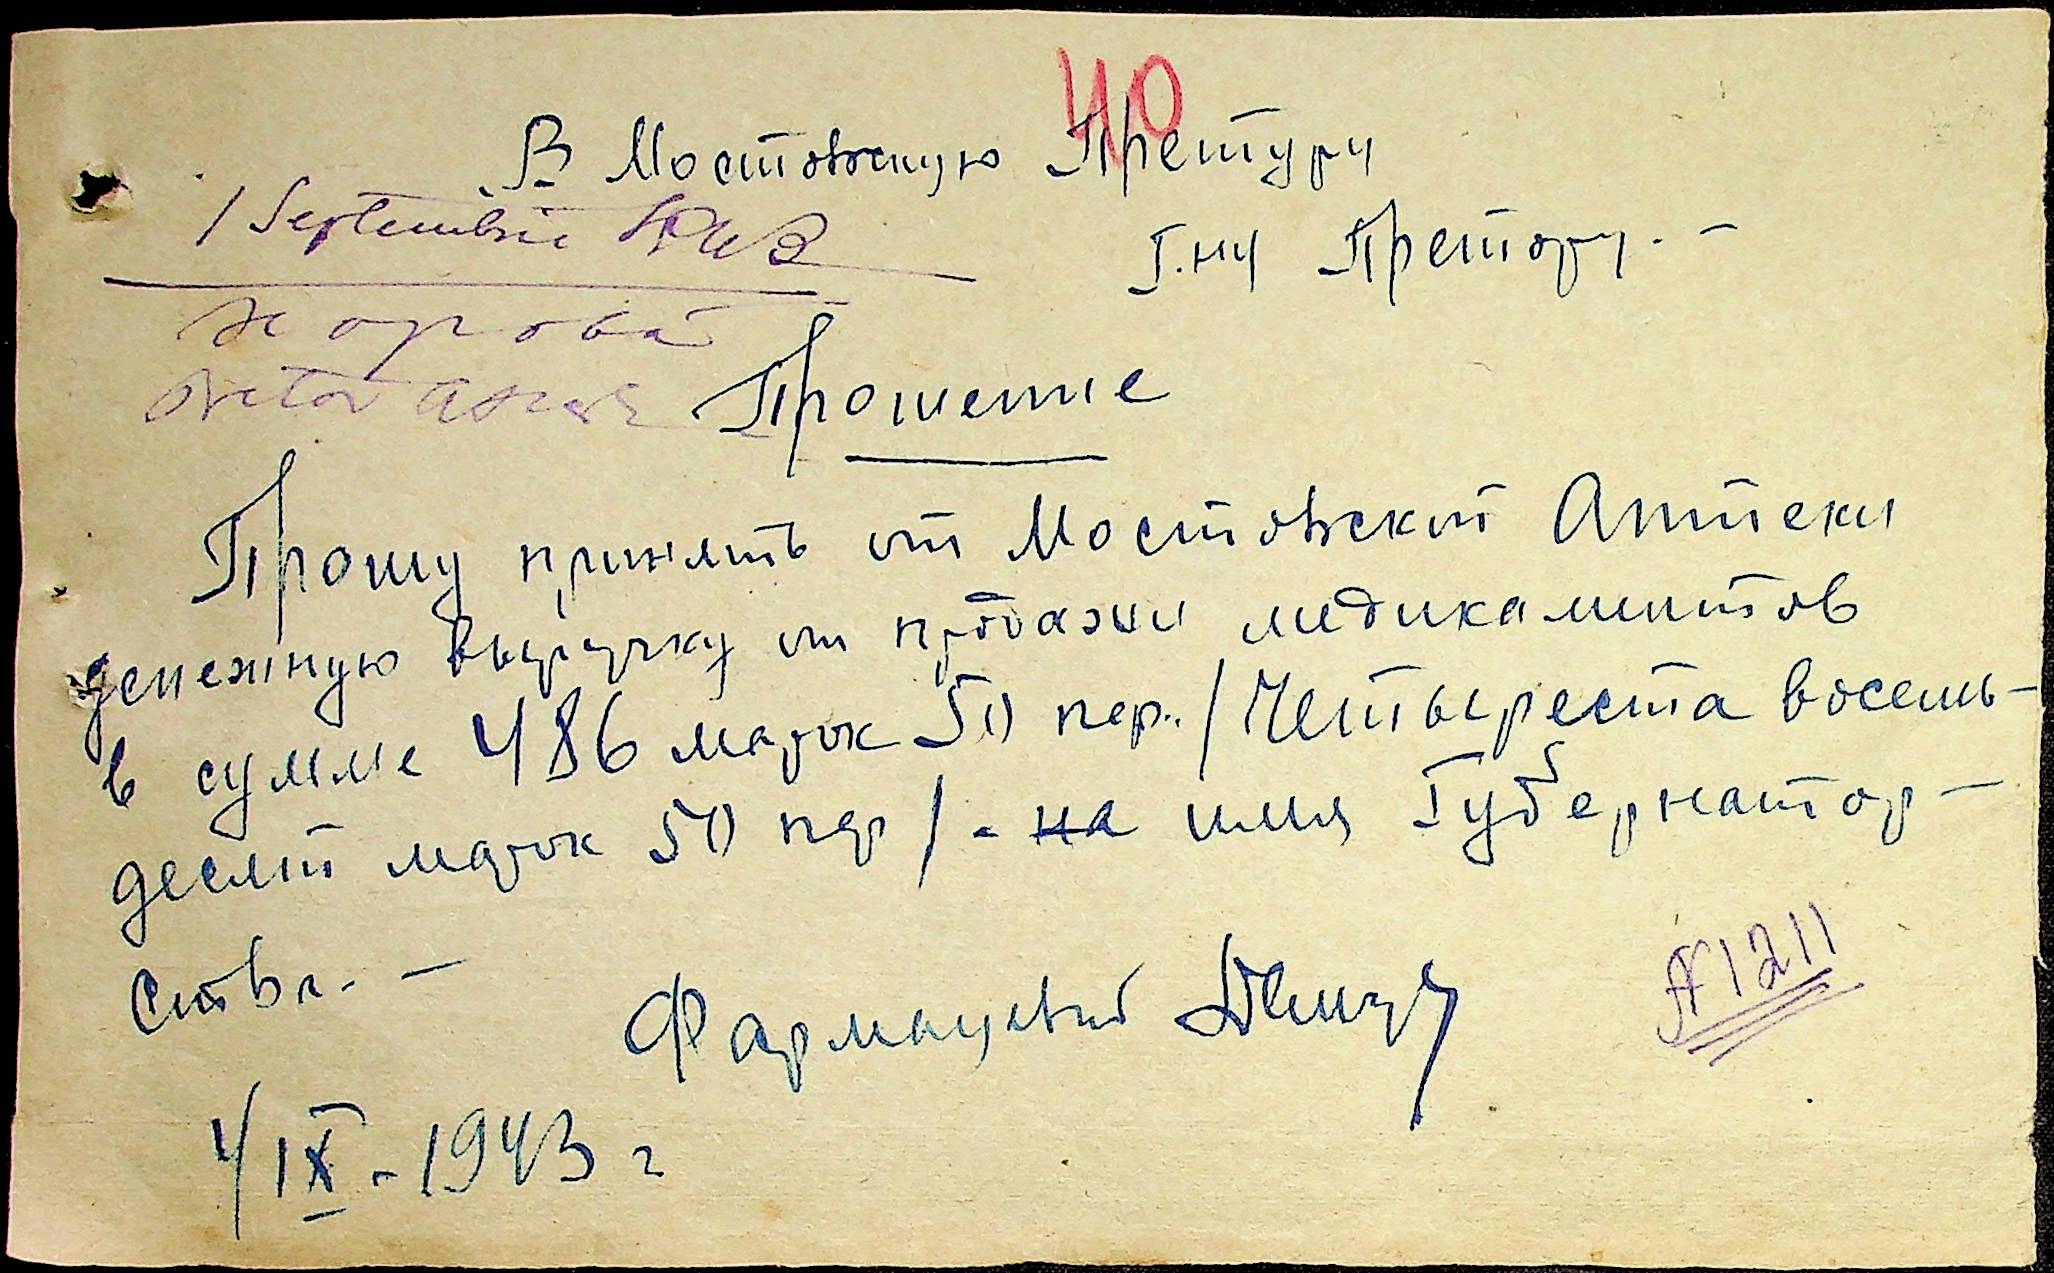 40
В Мостовскую Претуру
Г.ну Претору. –
1 Septembrie 1943
Прошение
Прошу принять от Мостовской Аптеки
денежную выручку от продажи медикаментов
в сумме 486 марок 50 пер. / Четыреста восемь–
десят марок 50 пер / - на имя Губернатор–
ства. –
Фармацевт
N 1211
4/IX - 1943 г